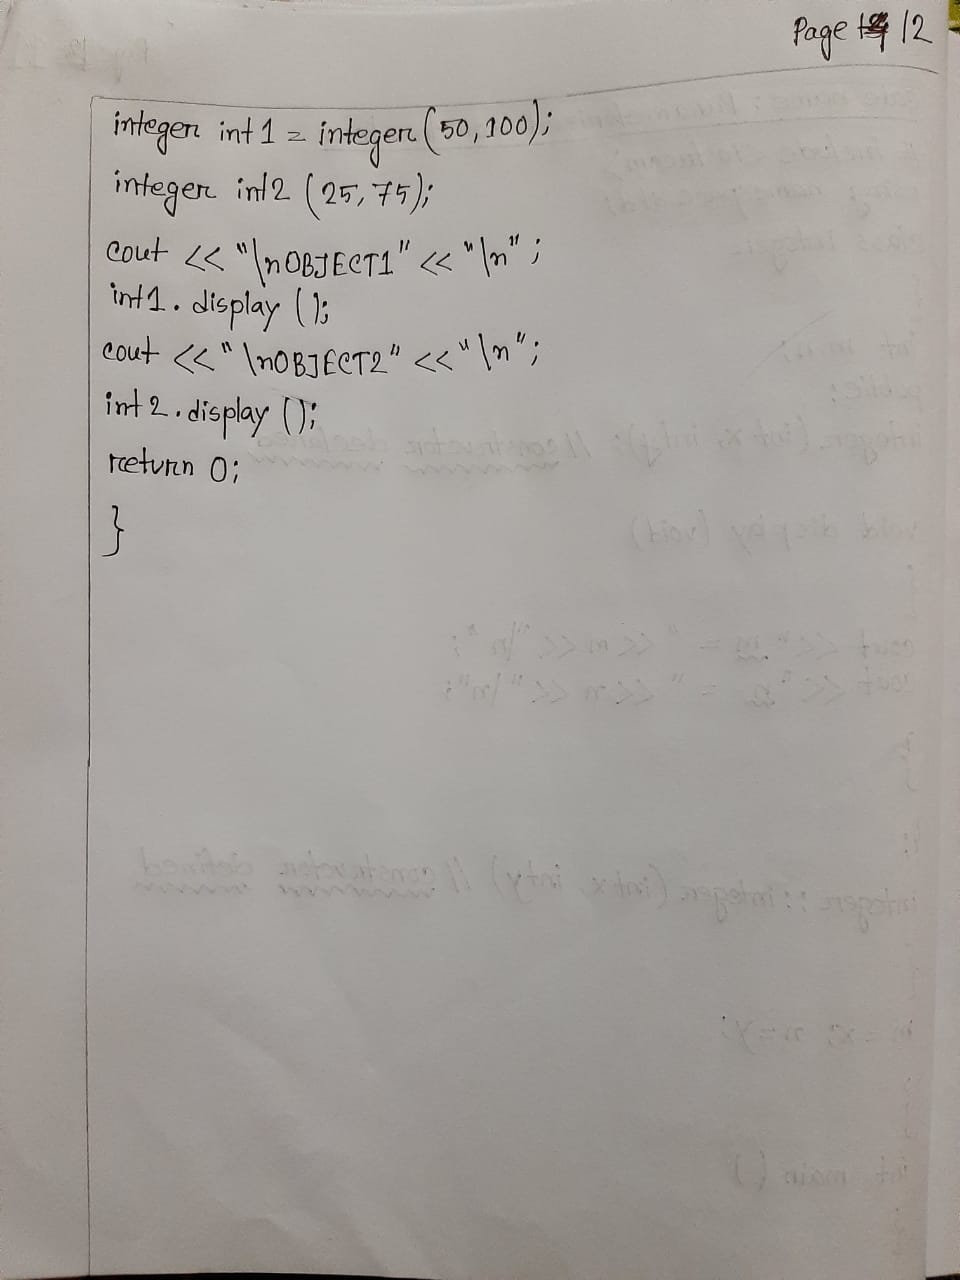 Page 12
integer int1 = integer (50,100);
integer int2 (25,75);
cout << "\nOBJECT1" << "\n";
int1. display ();
cout << "\nOBJECT2" << "\n";
int2. display ();
return 0;
}